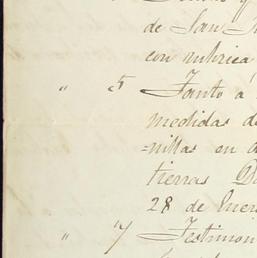 de San
con rubrica
" 5 Tanto á
medidas de
nillas en
tierras
28 de Ener
" 7 Testimon